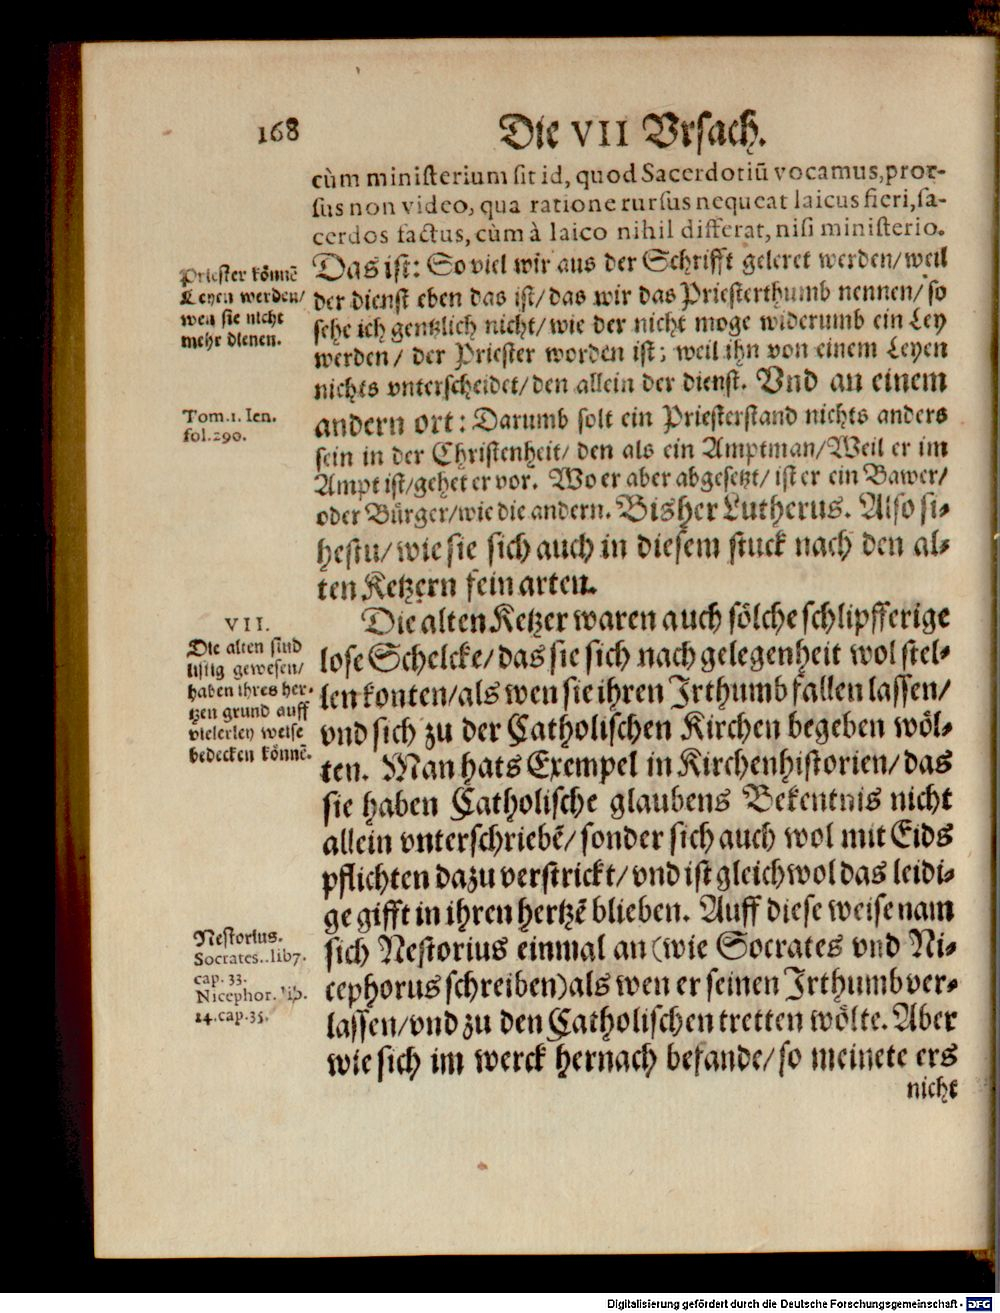 168
Die VII Vrsach.
cùm ministerium sit id, quod Sacerdotiū vocamus, pror-
sus non video, qua ratione rursus nequeat laicus fieri, sa-
cerdos factus, cùm à laico nihil differat, nisi ministerio.
Das ist: So viel wir aus der Schrifft geleret werden/ weil
der dienst eben das ist/ das wir das Priesterthumb nennen/ so
sehe ich gentzlich nicht/ wie der nicht moge widerumb ein Ley
werden/ der Priester worden ist; weil ihn von einem Leyen
nichts vnterscheidet/ den allein der dienst. Vnd an einem
andern ort: Darumb solt ein Priesterstand nichts anders
sein in der Christenheit/ den als ein Amptman/ Weil er im
Ampt ist/ gehet er vor. Wo er aber abgesetzt/ ist er ein Bawer/
oder Bürger/ wie die andern. Bisher Lutherus. Also si-
hestu/ wie sie sich auch in diesem stuck nach den al-
ten Ketzern fein arten.
Priester könnē
Leyen werden/
wen sie nicht
mehr dienen.
Tom. 1. Ien.
fol. 290.
Die alten Ketzer waren auch sölche schlipfferige
lose Schelcke/ das sie sich nach gelegenheit wol stel-
len konten/ als wen sie ihren Irthumb fallen lassen/
vnd sich zu der Catholischen Kirchen begeben wöl-
ten. Man hats Exempel in Kirchenhistorien/ das
sie haben Catholische glaubens Bekentnis nicht
allein vnterschriebē/ sonder sich auch wol mit Eids
pflichten dazu verstrickt/ vnd ist gleichwol das leidi-
ge gifft in ihren hertzē blieben. Auff diese weise nam
sich Nestorius einmal an (wie Socrates vnd Ni-
cephorus schreiben) als wen er seinen Irthumb ver-
lassen/ vnd zu den Catholischen tretten wölte. Aber
wie sich im werck hernach befande/ so meinete ers
nicht
VII.
Die alten sind
listig gewesen/
haben ihres her-
tzen grund auff
vielerley weise
bedecken könnē.
Nestorius.
Socrates. lib 7.
cap. 33.
Nicephor. lib.
14. cap. 35.
Digitalisierung gefördert durch die Deutsche Forschungsgemeinschaft - DFG